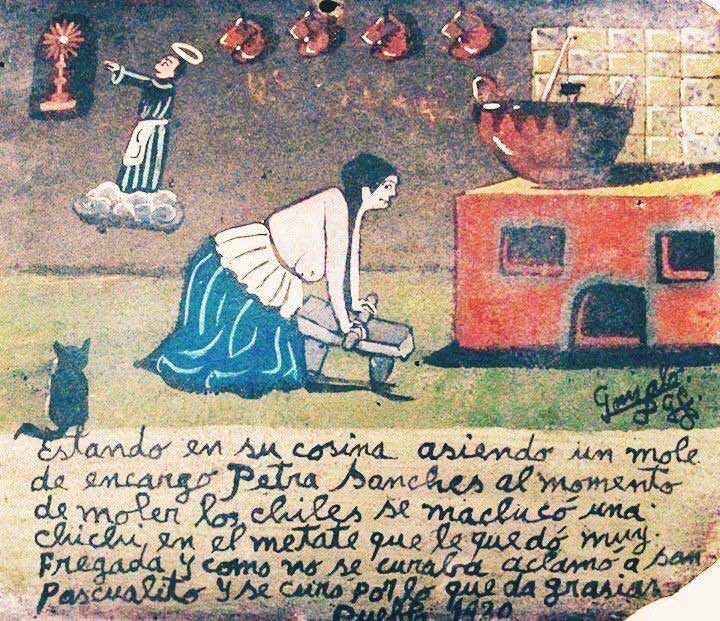 Gonzalo
Estando en su cosina asiendo un mole
de encargo Petra Sanches al momento
de moler los chiles se maclucó una
chichi, en el metate que le quedó muy.
Fregada y como no se curaba aclamó á San
Pascualito y se curó por lo que da grasias
Puebla 1920